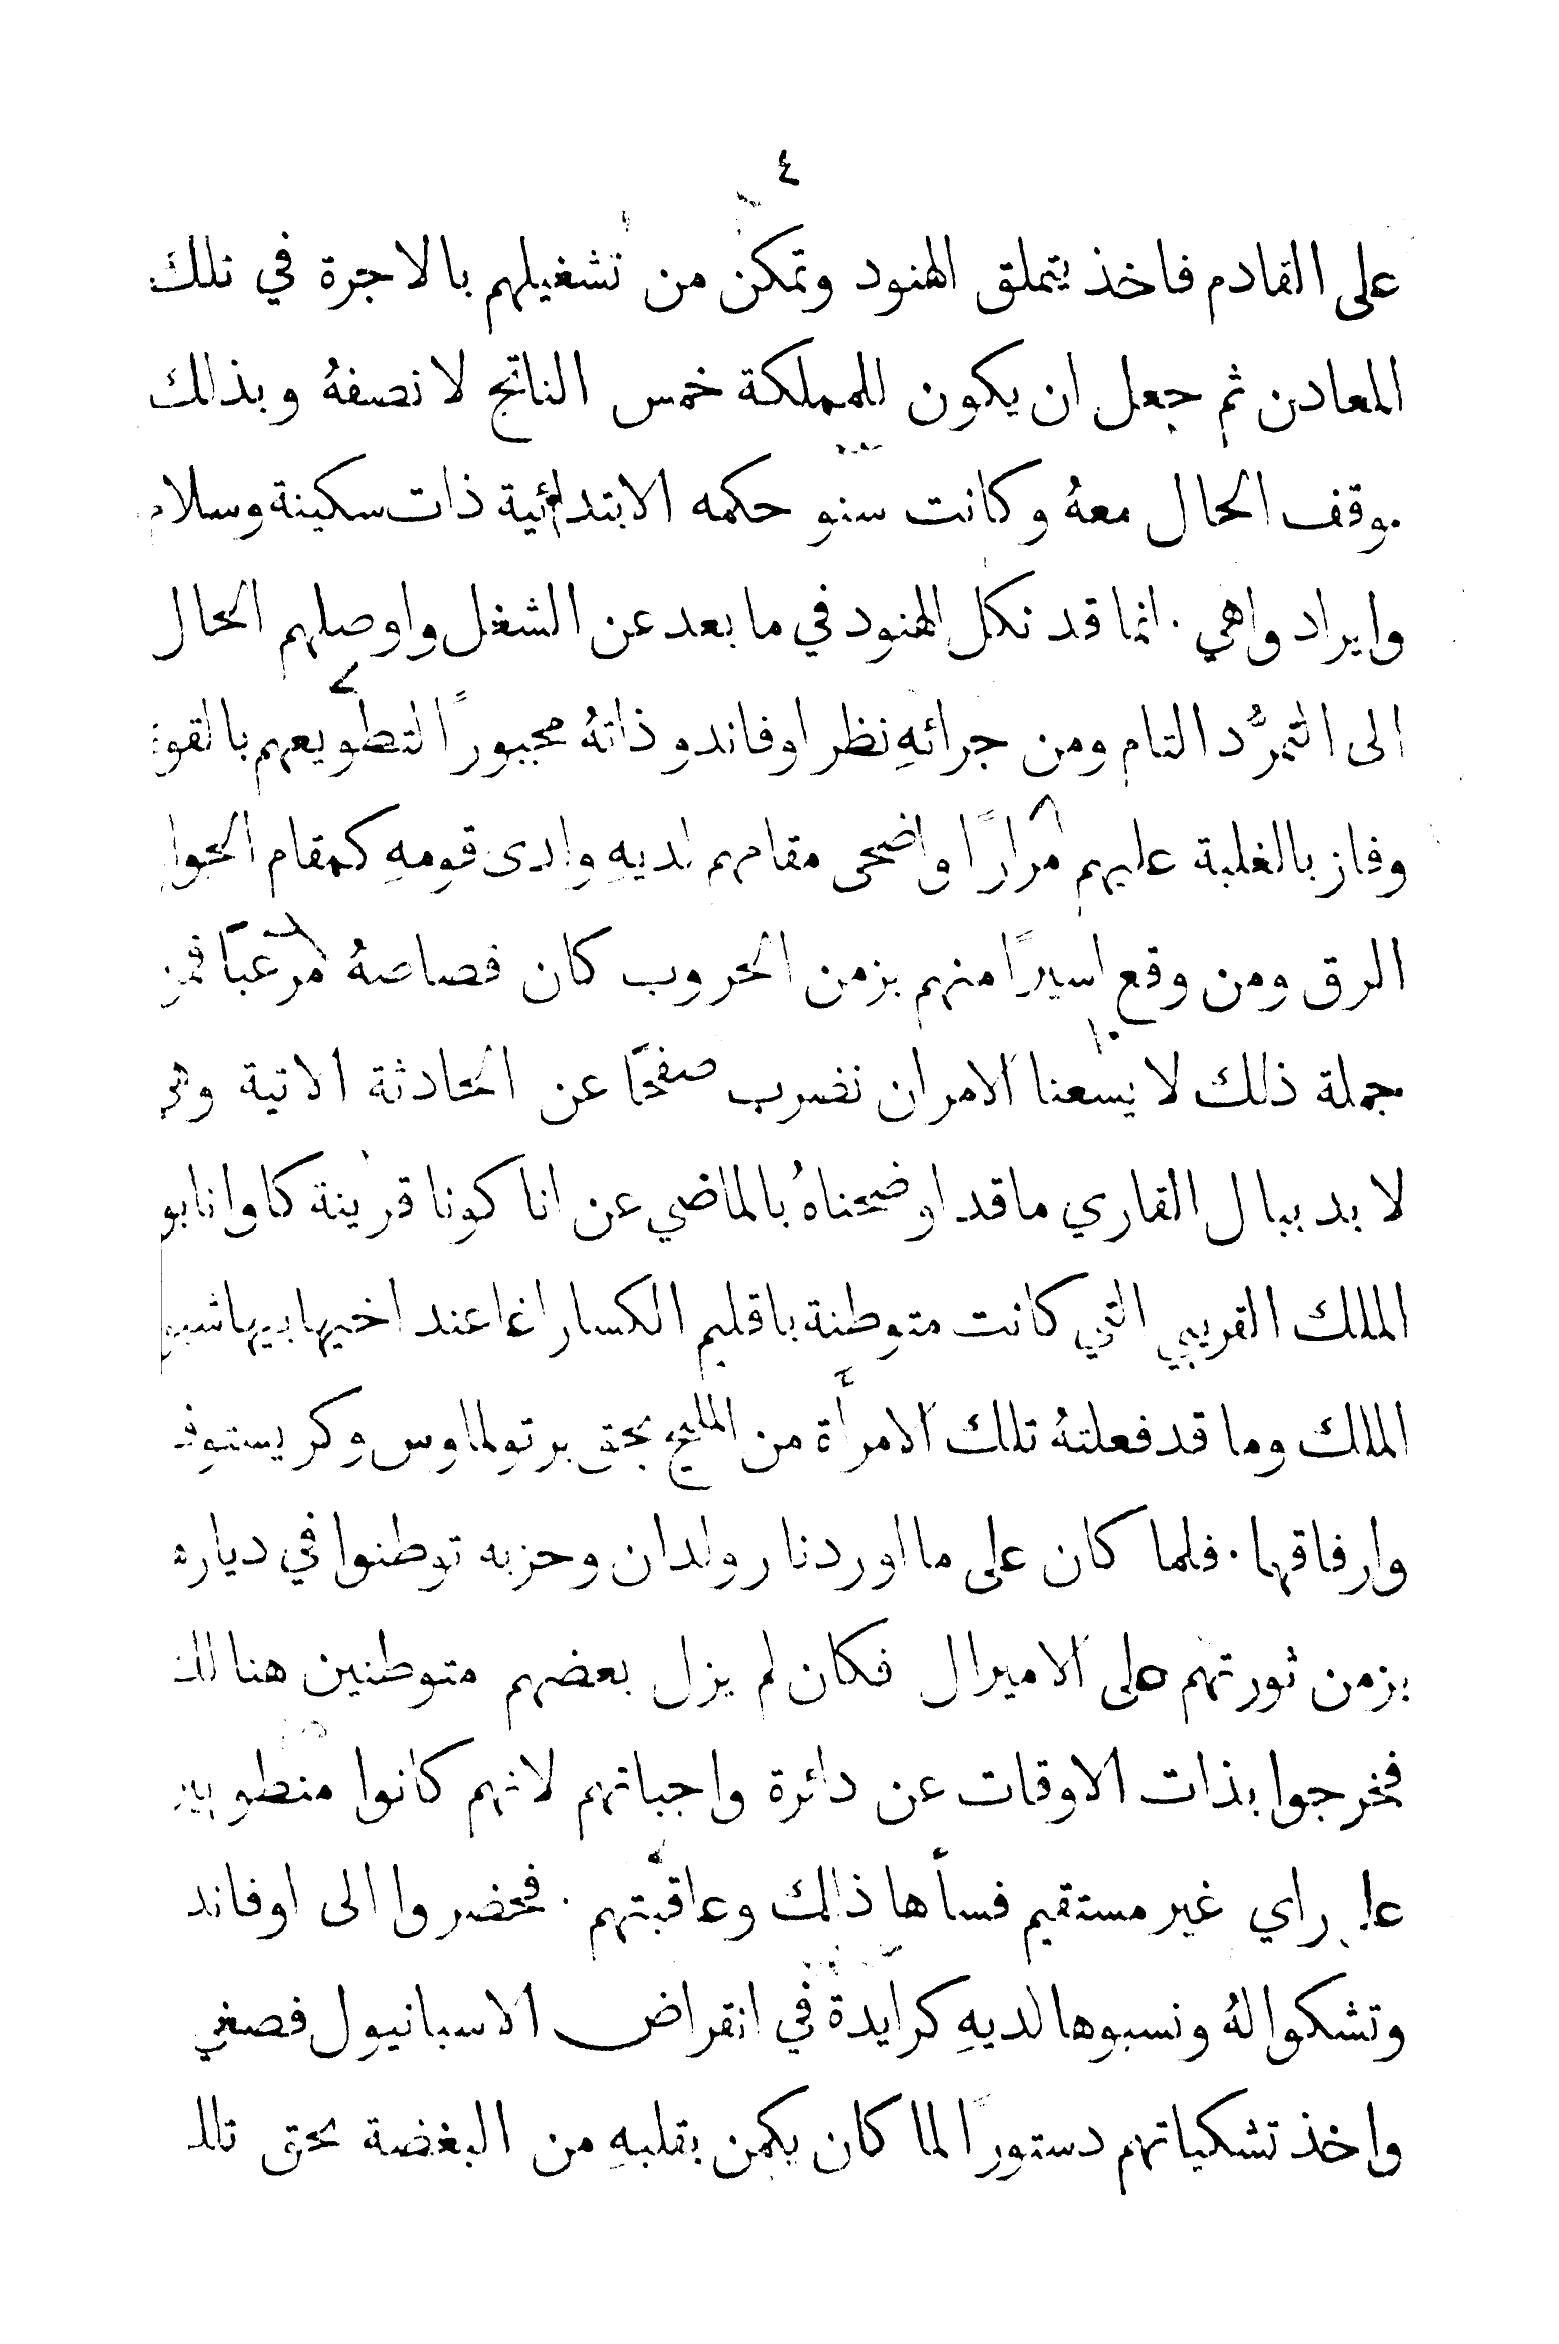 ٤
على القادم فاخذ يتملق الهنود وتمكن من تشغيلهم بالاجرة في تلك
المعادن ثم جعل ان يكون للمملكة خمس الناتج لا نصفهُ وبذلك
وقف الحال معهُ وكانت سنو حكمه الابتدائية ذات سكينة وسلام
وايراد واهي . انما قد نكل الهنود في ما بعد عن الشغل واوصلهم الحال
الى التمرُّد التام ومن جرائهِ نظر اوفاندو ذاتهُ مجبورًا لتطويعهم بالقوة
وفاز بالغلبة عليهم مرارًا واضحى مقامهم لديهِ ولدى قومهِ كمقام
الرق ومن وقع اسيرًا منهم بزمن الحروب كان قصاصهُ مرعبًا فمن
جملة ذلك لا يسعنا الامر ان نضرب صفحًا عن الحادثة الاتية وهي
لا بد ببال القاري ما قد اوضحناهُ بالماضي عن انا كونا قرينة كاوانابو
الملك القريبي التي كانت متوطنة باقليم الكساراغا عند اخيها بيهاشيو
الملك وما قد فعلتهُ تلك الامرأة من المليح بحق برتولماوس وكريستوف
وارفاقها . فلما كان على ما اوردنا رولدان وحزبه توطنوا في دياره
بزمن ثورتهم على الاميرال فكان لم يزل بعضهم متوطنين هنالك
فخرجوا بذات الاوقات عن دائرة واجباتهم لانهم كانوا منطويين
على راي غير مستقيم فسأها ذلك وعاقبتهم . فحضروا الى اوفاند
وتشكوا لهُ ونسبوها لديهِ كرايدة في انقراض الاسبانيول فصغي
واخذ تشكياتهم دستورًا لما كان يكمن بقلبهِ من البغضة بحق تلك